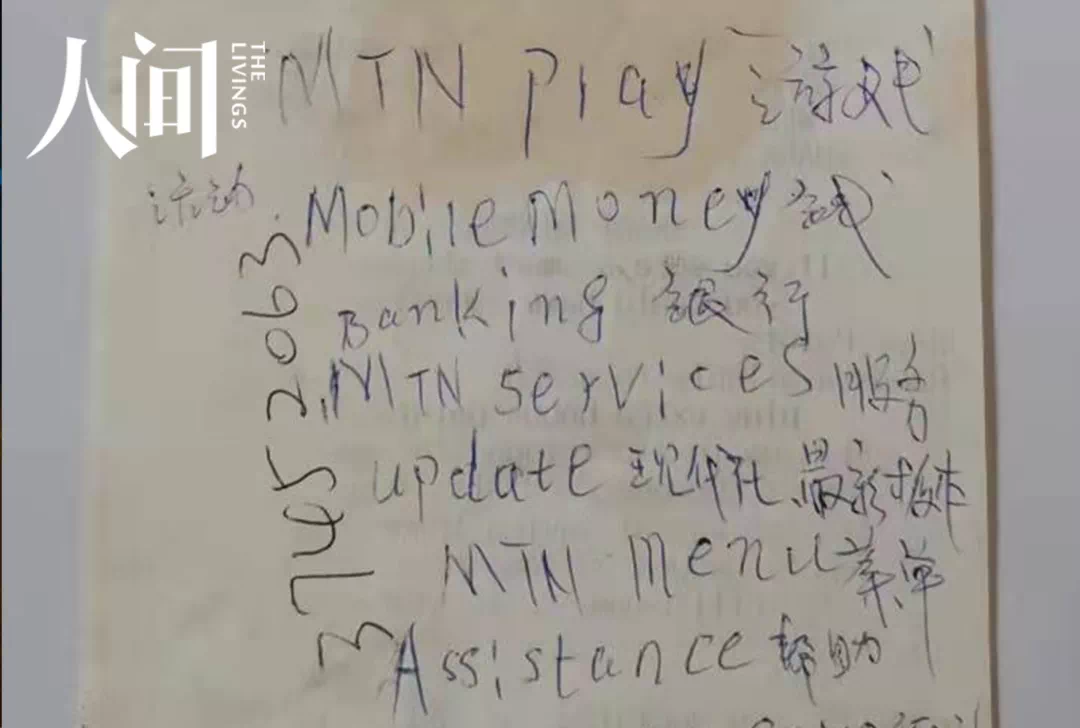 人间
THE LIVINGS
MTN Play 游戏
流动 Mobile Money 钱
Banking 银行
MTN Services 服务
update 现代化、最新
MTN Menu 菜单
Assistance 帮助
3745 2063